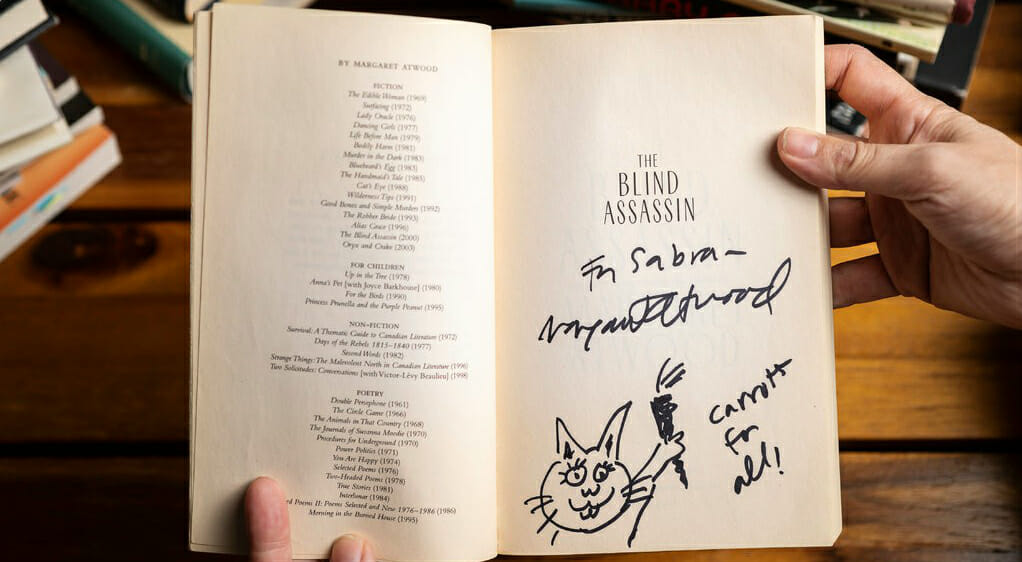 BY MARGARET ATWOOD
FICTION
The Edible Woman (1969)
Surfacing (1972)
Lady Oracle (1976)
Dancing Girls (1977)
Life Before Man (1979)
Bodily Harm (1981)
Murder in the Dark (1983)
Bluebeard's Egg (1983)
The Handmaid's Tale (1985)
Cat's Eye (1988)
Wilderness Tips (1991)
Good Bones and Simple Murders (1992)
The Robber Bride (1993)
Alias Grace (1996)
The Blind Assassin (2000)
Oryx and Crake (2003)
FOR CHILDREN
Up in the Tree (1978)
Anna's Pet [with Joyce Barkhouse] (1980)
For the Birds (1990)
Princess Prunella and the Purple Peanut (1995)
NON-FICTION
Survival: A Thematic Guide to Canadian Literature (1972)
Days of the Rebels 1815–1840 (1977)
Second Words (1982)
Strange Things: The Malevolent North in Canadian Literature (1996)
Two Solicitudes: Conversations [with Victor-Lévy Beaulieu] (1998)
POETRY
Double Persephone (1961)
The Circle Game (1966)
The Animals in That Country (1968)
The Journals of Susanna Moodie (1970)
Procedures for Underground (1970)
Power Politics (1971)
You Are Happy (1974)
Selected Poems (1976)
Two-Headed Poems (1978)
True Stories (1981)
Interlunar (1984)
Poems II: Poems Selected and New 1976–1986 (1986)
Morning in the Burned House (1995)
THE
BLIND
ASSASSIN
For Sabra –
Margaret Atwood
Carrots
for
all!